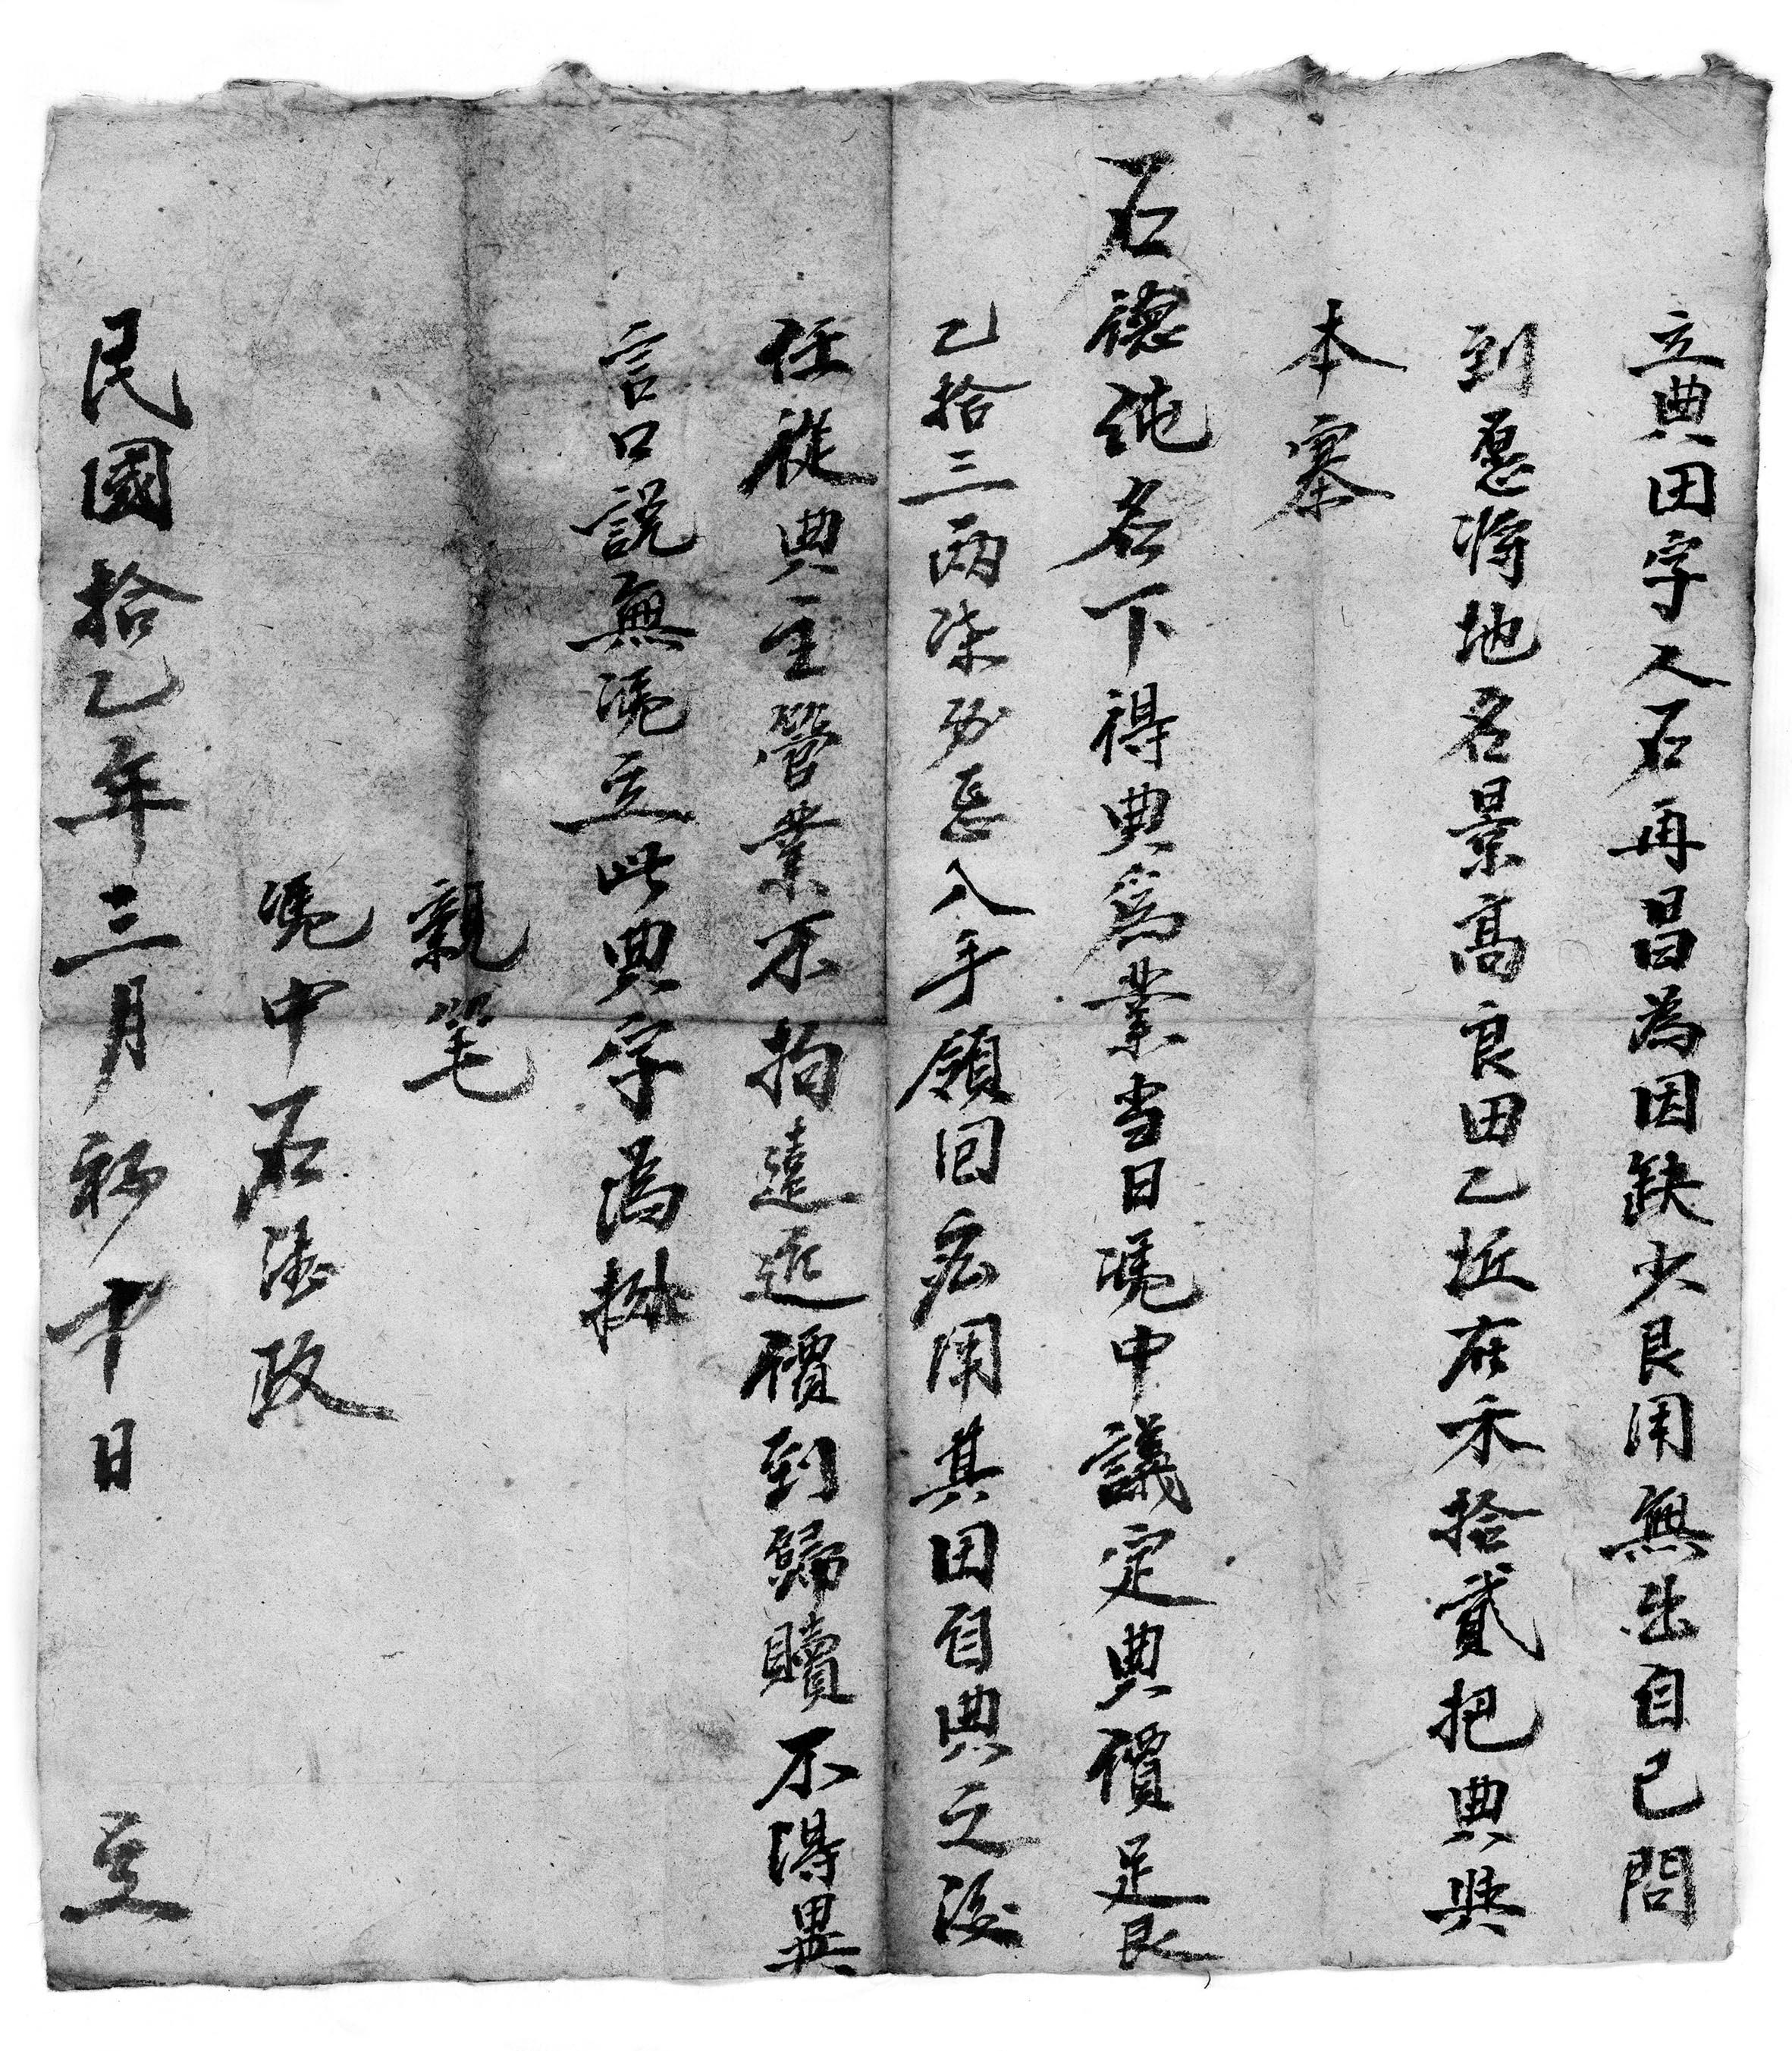 立典田字人石再昌為因缺少艮用無出自己問
到愿將地名景高良田乙坵在禾拾貳把典與
本寨
石德純名下得典為業当日凴中議定典價足艮
乙拾三兩柒分 入手領回應用其田自典之後
任從典主管業不拘遠近價到歸贖不得異
言口説無凴立此典字為拠
親笔
凴中石德政
民國拾乙年三月初十日 立